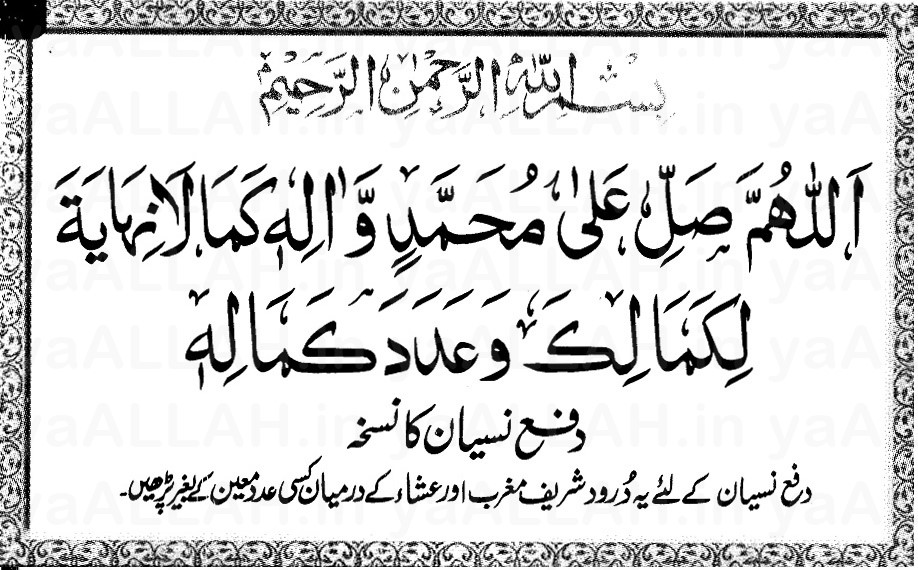 بِسْمِ اللهِ الرَّحْمٰنِ الرَّحِيْمِ
اَللّٰهُمَّ صَلِّ عَلٰى مُحَمَّدٍ وَّاٰلِهٖ كَمَا لَا نِهَايَةَ
لِكَمَالِكَ وَعَدَدَ كَمَالِهٖ
دفع نسیان کا نسخہ
دفع نسیان کے لئے یہ دُرود شریف مغرب اور عشاء کے درمیان کسی عدد معین کے بغیر پڑھیں۔
yaALLAH.in